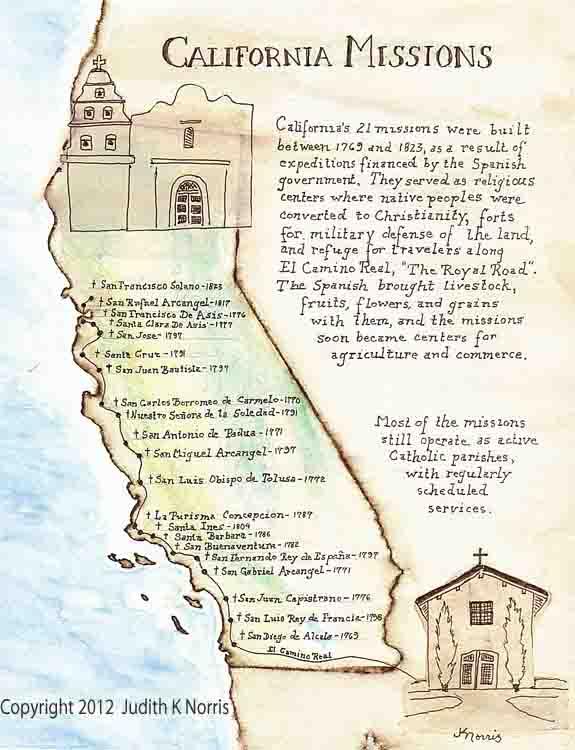 CALIFORNIA MISSIONS
California's 21 missions were built
between 1769 and 1823, as a result of
expeditions financed by the Spanish
government. They served as religious
centers where native peoples were
converted to Christianity, forts
for military defense of the land,
and refuge for travelers along
El Camino Real, "The Royal Road".
The Spanish brought livestock,
fruits, flowers, and grains
with them, and the missions
soon became centers for
agriculture and commerce.
San Francisco Solano-1823
San Rafael Arcangel-1817
San Francisco De Asis-1776
Santa Clara De Asis-1777
San Jose-1797
Santa Cruz-1791
San Juan Bautista-1797
San Carlos Borromeo de Carmelo-1770
Nuestro Señora de la Soledad-1791
San Antonio de Padua-1771
San Miguel Arcangel-1797
San Luis Obispo de Tolusa-1772
La Purisma Concepcion-1787
Santa Ines-1804
Santa Barbara-1786
San Buenaventura-1782
San Fernando Rey de España-1797
San Gabriel Arcangel-1771
San Juan Capistrano-1776
San Luis Rey de Francia-1798
San Diego de Alcala-1769
El Camino Real
Most of the missions
still operate as active
Catholic parishes,
with regularly
scheduled
services.
KNorris
Copyright 2012 Judith K Norris